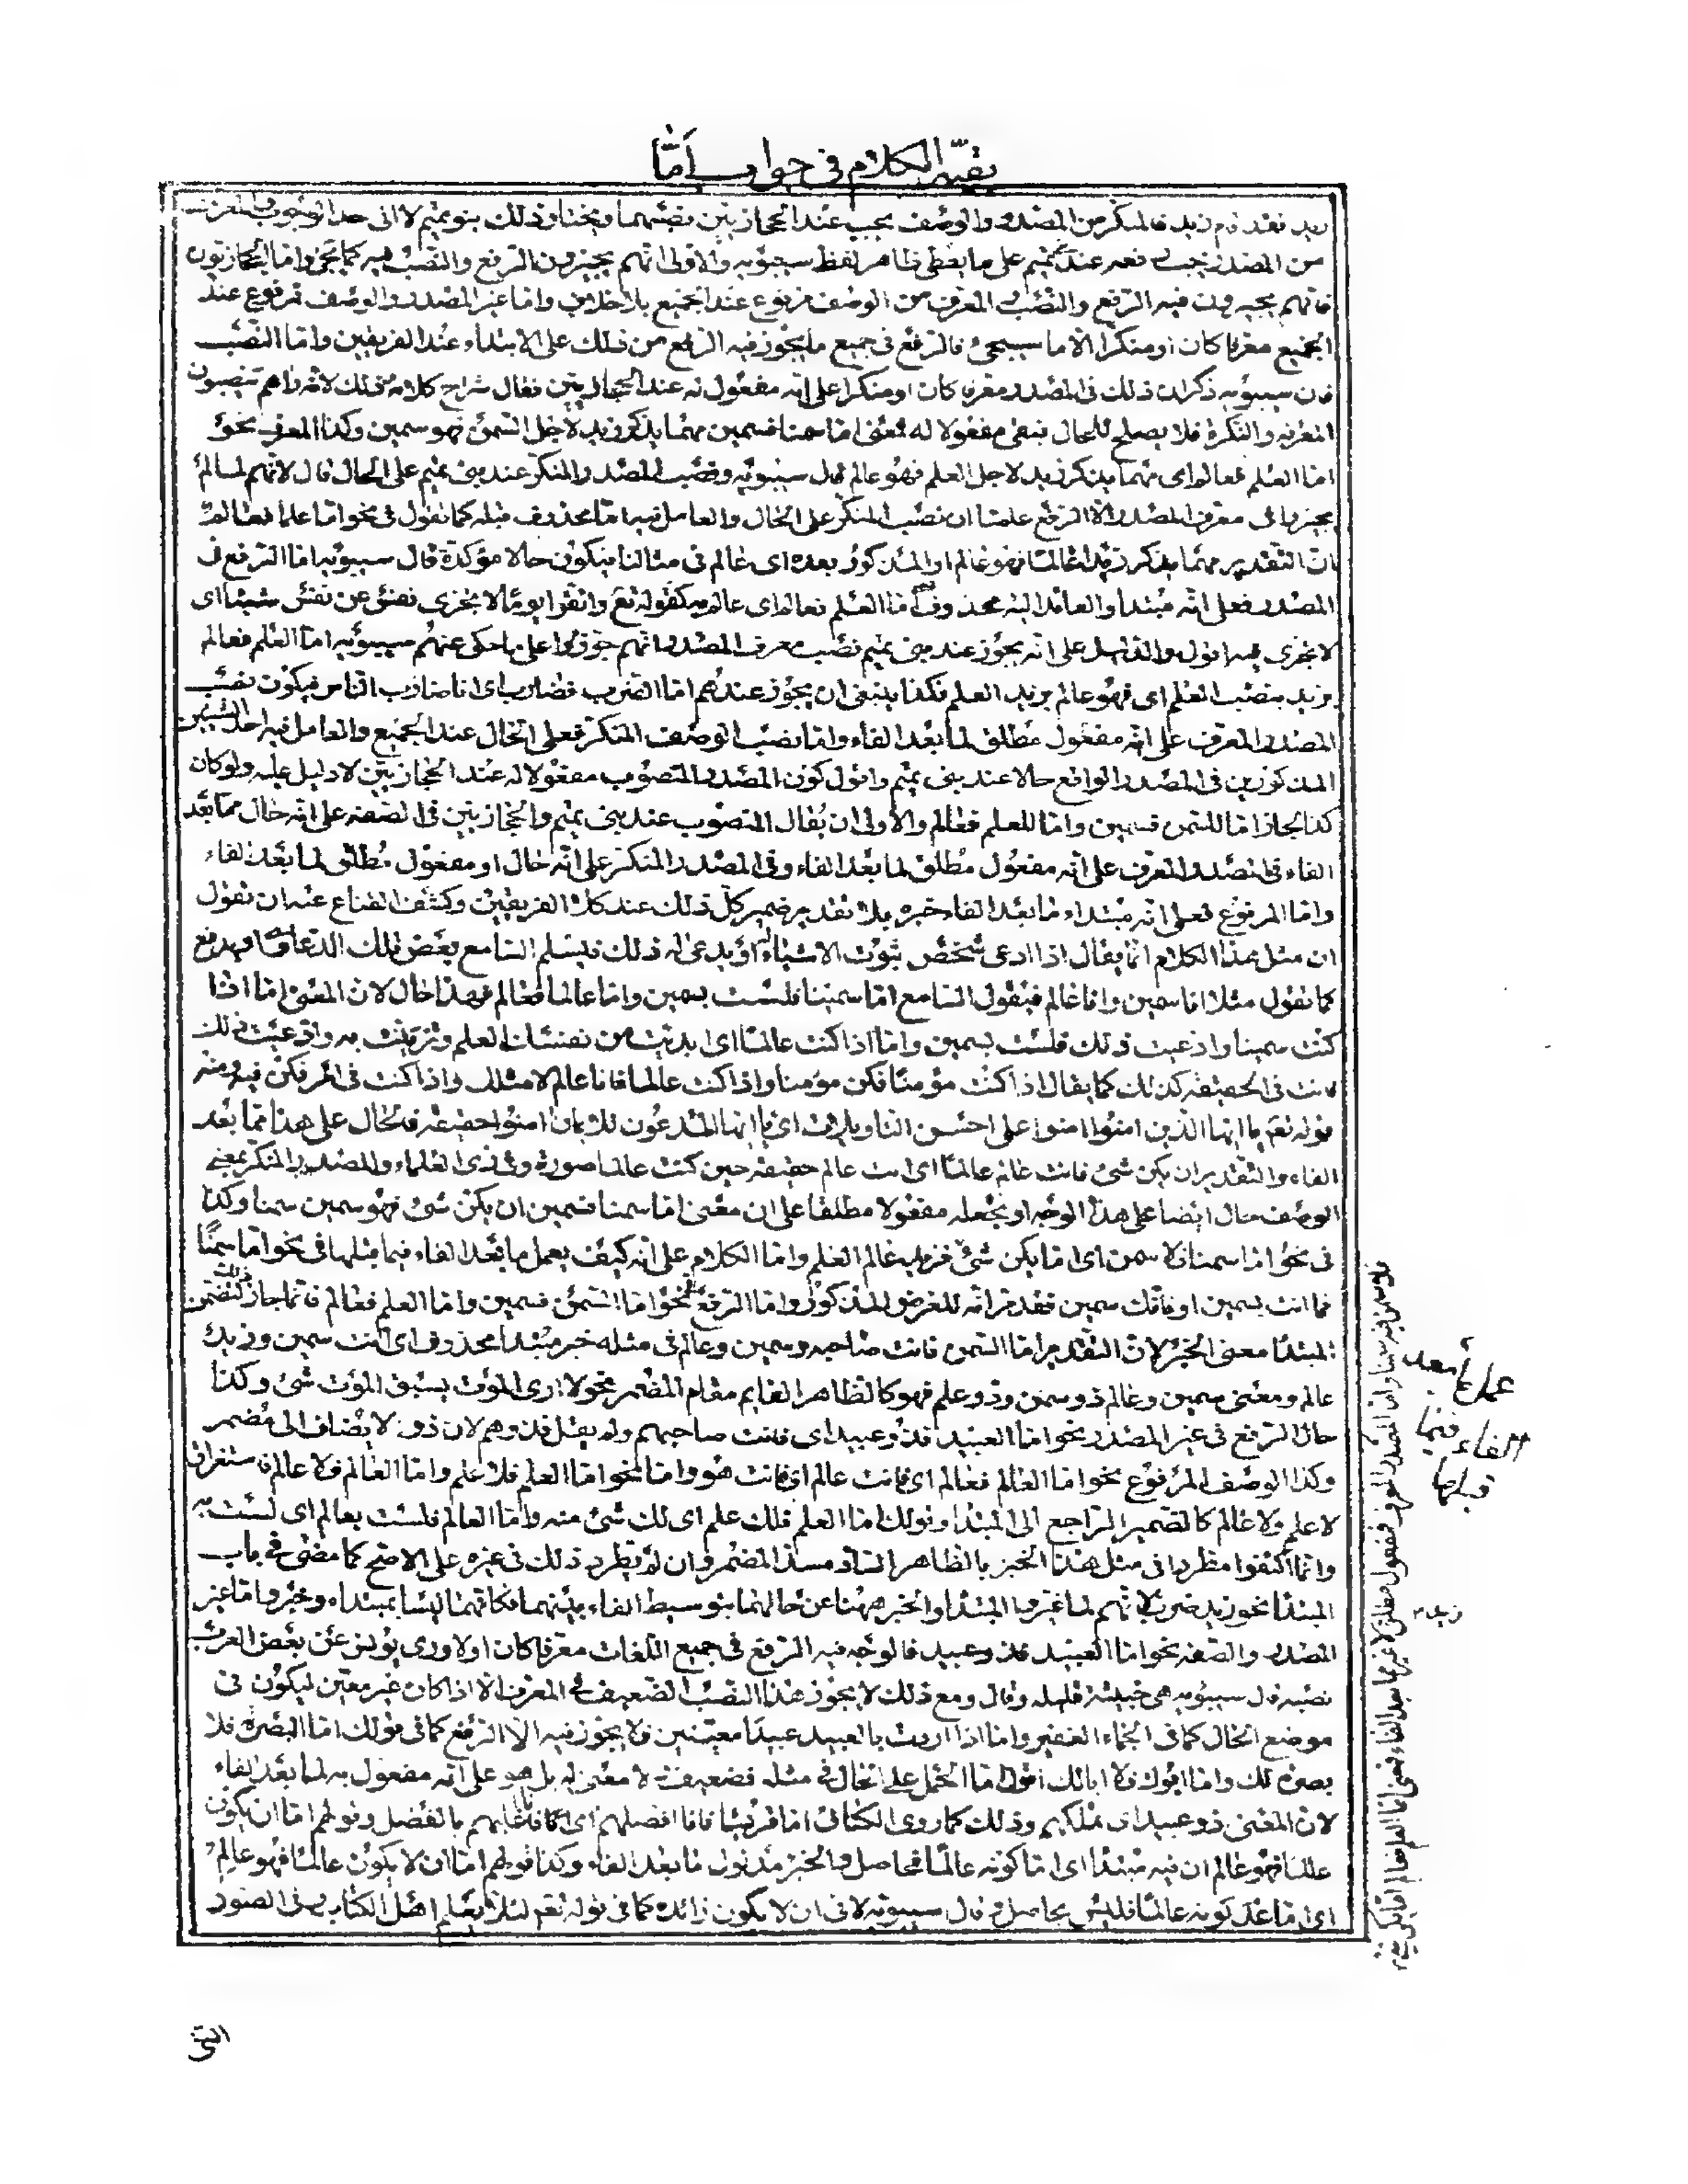 بقيّة الكلام فى جواب أمّا
فالمنكر من المصدر والوصف يجب عند الحجازيين نصبهما ويختار ذلك بنو تميم لا الى حد الوجوب
من المصدر يجب رفعه عند تميم على ما يعطى ظاهر لفظ سيبويه والاولى انهم يجيزون الرفع والنصب فيه كما يجئ واما الحجازيون
فانهم يجيزون فيه الرفع والنصب والمعرف من الوصف مرفوع عند الجميع بلا خلاف واما غير المصدر والوصف فمرفوع عند
الجميع معرفا كان او منكرا الا ما سيجئ فالرفع فى جميع ما يجوز فيه الرفع من ذلك على الابتداء عند الفريقين واما النصب
فان سيبويه ذكر ان ذلك فى المصدر معرفا كان او منكرا على انه مفعول له عند الحجازيين فقال شراح كلامه ذلك لانه راهم ينصبون
المعرفة والنكرة فلا يصلح للحال فبقى مفعولا له فمعنى اما سمنا فسمين مهما يذكر زيد لاجل السمن فهو سمين وكذا المعرف نحو
اما العلم فعالم اى مهما يذكر زيد لاجل العلم فهو عالم قال سيبويه ونصب المصدر المنكر عند بنى تميم على الحال قال لانهم لما لم
يجيزوا فى معرف المصدر الا الرفع علمنا ان نصب المنكر على الحال والعامل فيه اما محذوف قبله كما تقول فى نحو اما علما فعالم
ان التقدير مهما يذكر زيد عالما فهو عالم او المذكور بعده اى عالم فى مثالنا فيكون حالا مؤكدة قال سيبويه اما الرفع فى
المصدر فعلى انه مبتدأ والعائد اليه محذوف فمعنى اما العلم فعالم اى عالم به كقوله تع واتقوا يوما لا تجزى نفس عن نفس شيئا اى
لا تجزى فيه اقول والدليل على انه يجوز عند بنى تميم نصب معرف المصدر انهم جوزوا على ما حكى عنهم سيبويه اما العلم فعالم
بزيد بنصب العلم اى فهو عالم بزيد العلم فكذا ينبغى ان يجوز عندهم اما الضرب فضارب اى انا ضارب الناس فيكون نصب
المصدر المعرف على انه مفعول مطلق لما بعد الفاء واما نصب الوصف المنكر فعلى الحال عند الجميع والعامل فيه احد الشيئين
المذكورين فى المصدر الواقع حالا عند بنى تميم واقول كون المصدر المنصوب مفعولا له عند الحجازيين لا دليل عليه ولو كان
كذا لجاز اما للسمن فسمين واما للعلم فعالم والاولى ان يقال المنصوب عند بنى تميم والحجازيين فى الصفة على انه حال مما بعد
الفاء وفى المصدر المعرف على انه مفعول مطلق لما بعد الفاء وفى المصدر المنكر على انه حال او مفعول مطلق لما بعد الفاء
واما المرفوع فعلى انه مبتداء ما بعد الفاء خبره بلا تقدير ضمير كل ذلك عند كلا الفريقين وكشف القناع عنه ان تقول
ان مثل هذا الكلام انما يقال اذا ادعى شخص ثبوت الاشياء او يدعى له ذلك فيسلم السامع بعض تلك الدعاوى او يدفع
كما تقول مثلا انا سمين وانا عالم فيقول السامع اما سمينا فلست بسمين واما عالما فعالم فهذا حال لان المعنى اما اذا
كنت سمينا وادعيت ذلك فلست بسمين واما اذا كنت عالما اى ابديت من نفسك العلم وتزينت به وادعيت ذلك
فانت فى الحقيقة كذلك كما يقال اذا كنت مؤمنا فكن مؤمنا واذا كنت عالما فانا عالم لا مثلك واذا كنت فى امر فكن فيه ومنه
قوله تع يا ايها الذين امنوا امنوا على احسن التاويلات اى يا ايها المدعون للايمان امنوا حقيقة فالحال على هذا مما بعد
الفاء والتقدير ان يكن شئ فانت عالم عالما اى انت عالم حقيقة حين كنت عالما صورة وفى زى العلماء والمصدر المنكر بمعنى
الوصف حال ايضا على هذا الوجه او نجعله مفعولا مطلقا على ان معنى اما سمنا فسمين ان يكن شئ فهو سمين سمنا وكذا
فى نحو اما سمنا فلا سمن اى اما يكن شئ فزيد عالم العلم واما الكلام على انه كيف يعمل ما بعد الفاء فيما قبلها فى نحو اما سمنا
فما انت بسمين او فانك سمين فقد مر انه للغرض المذكور واما الرفع فى نحو اما السمن فسمين واما العلم فعالم فانما جاز ذلك لتضمن
المبتدأ معنى الخبر لان التقدير اما السمن فانت صاحبه وسمين وعالم فى مثله خبر مبتدأ محذوف اى انت سمين وزيد
عالم ومعنى سمين وعالم ذو سمن وذو علم فهو كالظاهر القايم مقام المضمر نحو لا ارى الموت يسبق الموت شئ وكذا
حال الرفع فى غير المصدر نحو اما العبيد فذو عبيد اى فانت صاحبهم ولم يقل فذوهم لان ذو لا يضاف الى مضمر
وكذا الوصف المرفوع نحو اما العالم فعالم اى فانت عالم اى فانت هو واما نحو اما العلم فلا علم واما العالم فلا عالم فاستغراق
لا علم ولا عالم كالضمير الراجع الى المبتدأ وقولك اما العلم فلك علم اى لك شئ منه واما العالم فلست بعالم اى لست به
وانما اكتفوا مطردا فى مثل هذا الخبر بالظاهر الساد مسد المضمر وان لم يطرد ذلك فى غيره على الاصح كما مضى فى باب
المبتدأ نحو زيد ضرب لانهم لما غيروا المبتدأ والخبر ههنا عن حالهما بتوسيط الفاء بينهما فكانهما ليسا بمبتداء وخبر واما غير
المصدر والصفة نحو اما العبيد فذو عبيد فالوجه فيه الرفع فى جميع اللغات معرفا كان او لا وروى يونس عن بعض العرب
نصبه قال سيبويه هى خبيثة قليلة وقال ومع ذلك لا يجوز هذا النصب الضعيف فى المعرف الا اذا كان غير معين ليكون فى
موضع الحال كما فى الجماء الغفير واما اذا اردت بالعبيد عبيدا معينين فلا يجوز فيه الا الرفع كما فى قولك اما البصرة فلا
بصرة لك واما ابوك فلا ابا لك اقول اما الحمل على الحال فى مثله فضعيف لا معنى له بل هو على انه مفعول به لما بعد الفاء
لان المعنى ذو عبيد اى تملكهم وذلك كما روى الكسائى اما قريشا فانا افضلهم اى فانا غالبهم بالفضل وقولهم اما ان يكون
عالما فهو عالم ان فيه مبتدأ اى اما كونه عالما فحاصل والخبر مدلول ما بعد الفاء وكذا قولهم اما ان لا يكون عالما فهو عالم
اى اما عدم كونه عالما فليس بحاصل قال سيبويه لا فى ان لا يكون زائدة كما فى قوله تع لئلا يعلم اهل الكتاب
عمل ما بعد
الفاء فيما
قبلها
زيد
التى